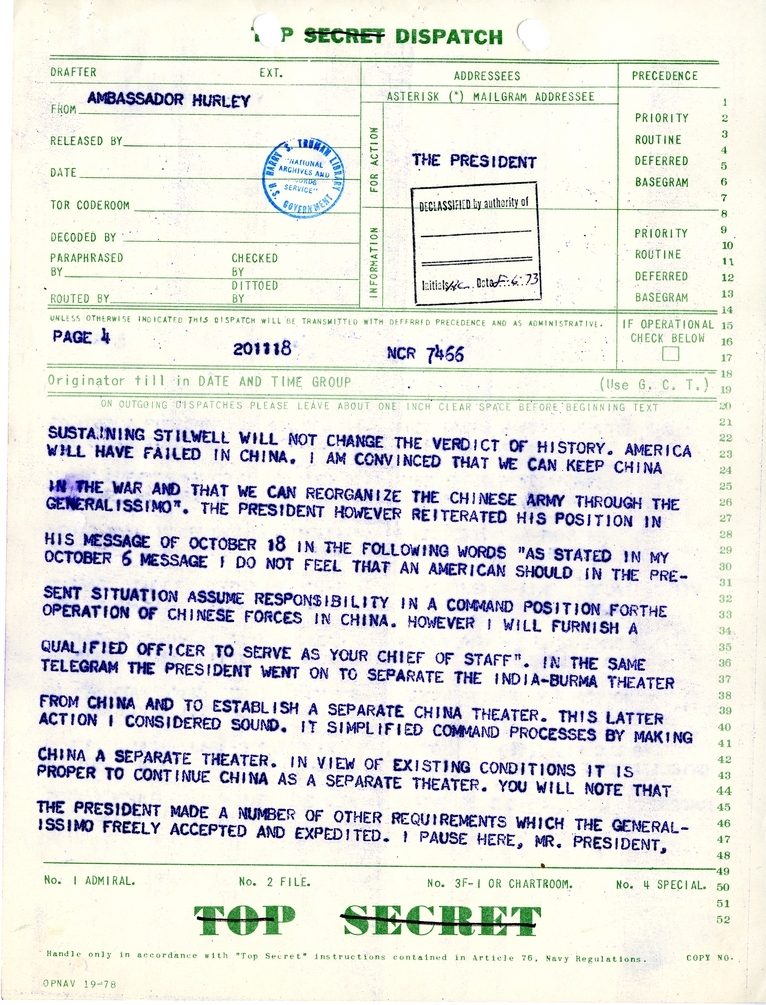 TOP SECRET DISPATCH
DRAFTER EXT.
FROM AMBASSADOR HURLEY
RELEASED BY
DATE
TOR CODEROOM
DECODED BY
PARAPHRASED BY
CHECKED BY
DITTOED BY
ROUTED BY
U.S. HARRY S. TRUMAN LIBRARY
"NATIONAL
ARCHIVES AND
SERVICE"
GOVERNMENT
ADDRESSEES
ASTERISK (*) MAILGRAM ADDRESSEE
FOR ACTION
THE PRESIDENT
DECLASSIFIED by authority of
Initials Date 5.6.73
INFORMATION
PRECEDENCE
PRIORITY
ROUTINE
DEFERRED
BASEGRAM
PRIORITY
ROUTINE
DEFERRED
BASEGRAM
UNLESS OTHERWISE INDICATED THIS DISPATCH WILL BE TRANSMITTED WITH DEFERRED PRECEDENCE AND AS ADMINISTRATIVE.
IF OPERATIONAL
CHECK BELOW
PAGE 4 201118 NCR 7466
Originator fill in DATE AND TIME GROUP (Use G. C. T.)
ON OUTGOING DISPATCHES PLEASE LEAVE ABOUT ONE INCH CLEAR SPACE BEFORE BEGINNING TEXT
SUSTAINING STILWELL WILL NOT CHANGE THE VERDICT OF HISTORY. AMERICA
WILL HAVE FAILED IN CHINA. I AM CONVINCED THAT WE CAN KEEP CHINA
IN THE WAR AND THAT WE CAN REORGANIZE THE CHINESE ARMY THROUGH THE
GENERALISSIMO". THE PRESIDENT HOWEVER REITERATED HIS POSITION IN
HIS MESSAGE OF OCTOBER 18 IN THE FOLLOWING WORDS "AS STATED IN MY
OCTOBER 6 MESSAGE I DO NOT FEEL THAT AN AMERICAN SHOULD IN THE PRE-
SENT SITUATION ASSUME RESPONSIBILITY IN A COMMAND POSITION FORTHE
OPERATION OF CHINESE FORCES IN CHINA. HOWEVER I WILL FURNISH A
QUALIFIED OFFICER TO SERVE AS YOUR CHIEF OF STAFF". IN THE SAME
TELEGRAM THE PRESIDENT WENT ON TO SEPARATE THE INDIA-BURMA THEATER
FROM CHINA AND TO ESTABLISH A SEPARATE CHINA THEATER. THIS LATTER
ACTION I CONSIDERED SOUND. IT SIMPLIFIED COMMAND PROCESSES BY MAKING
CHINA A SEPARATE THEATER. IN VIEW OF EXISTING CONDITIONS IT IS
PROPER TO CONTINUE CHINA AS A SEPARATE THEATER. YOU WILL NOTE THAT
THE PRESIDENT MADE A NUMBER OF OTHER REQUIREMENTS WHICH THE GENERAL-
ISSIMO FREELY ACCEPTED AND EXPEDITED. I PAUSE HERE, MR. PRESIDENT,
1
2
3
4
5
6
7
8
9
10
11
12
13
14
15
16
17
18
19
20
21
22
23
24
25
26
27
28
29
30
31
32
33
34
35
36
37
38
39
40
41
42
43
44
45
46
47
48
49
50
51
52
No. 1 ADMIRAL. No. 2 FILE. No. 3F-1 OR CHARTROOM. No. 4 SPECIAL.
TOP SECRET
Handle only in accordance with "Top Secret" instructions contained in Article 76, Navy Regulations. COPY NO.
OPNAV 19-78